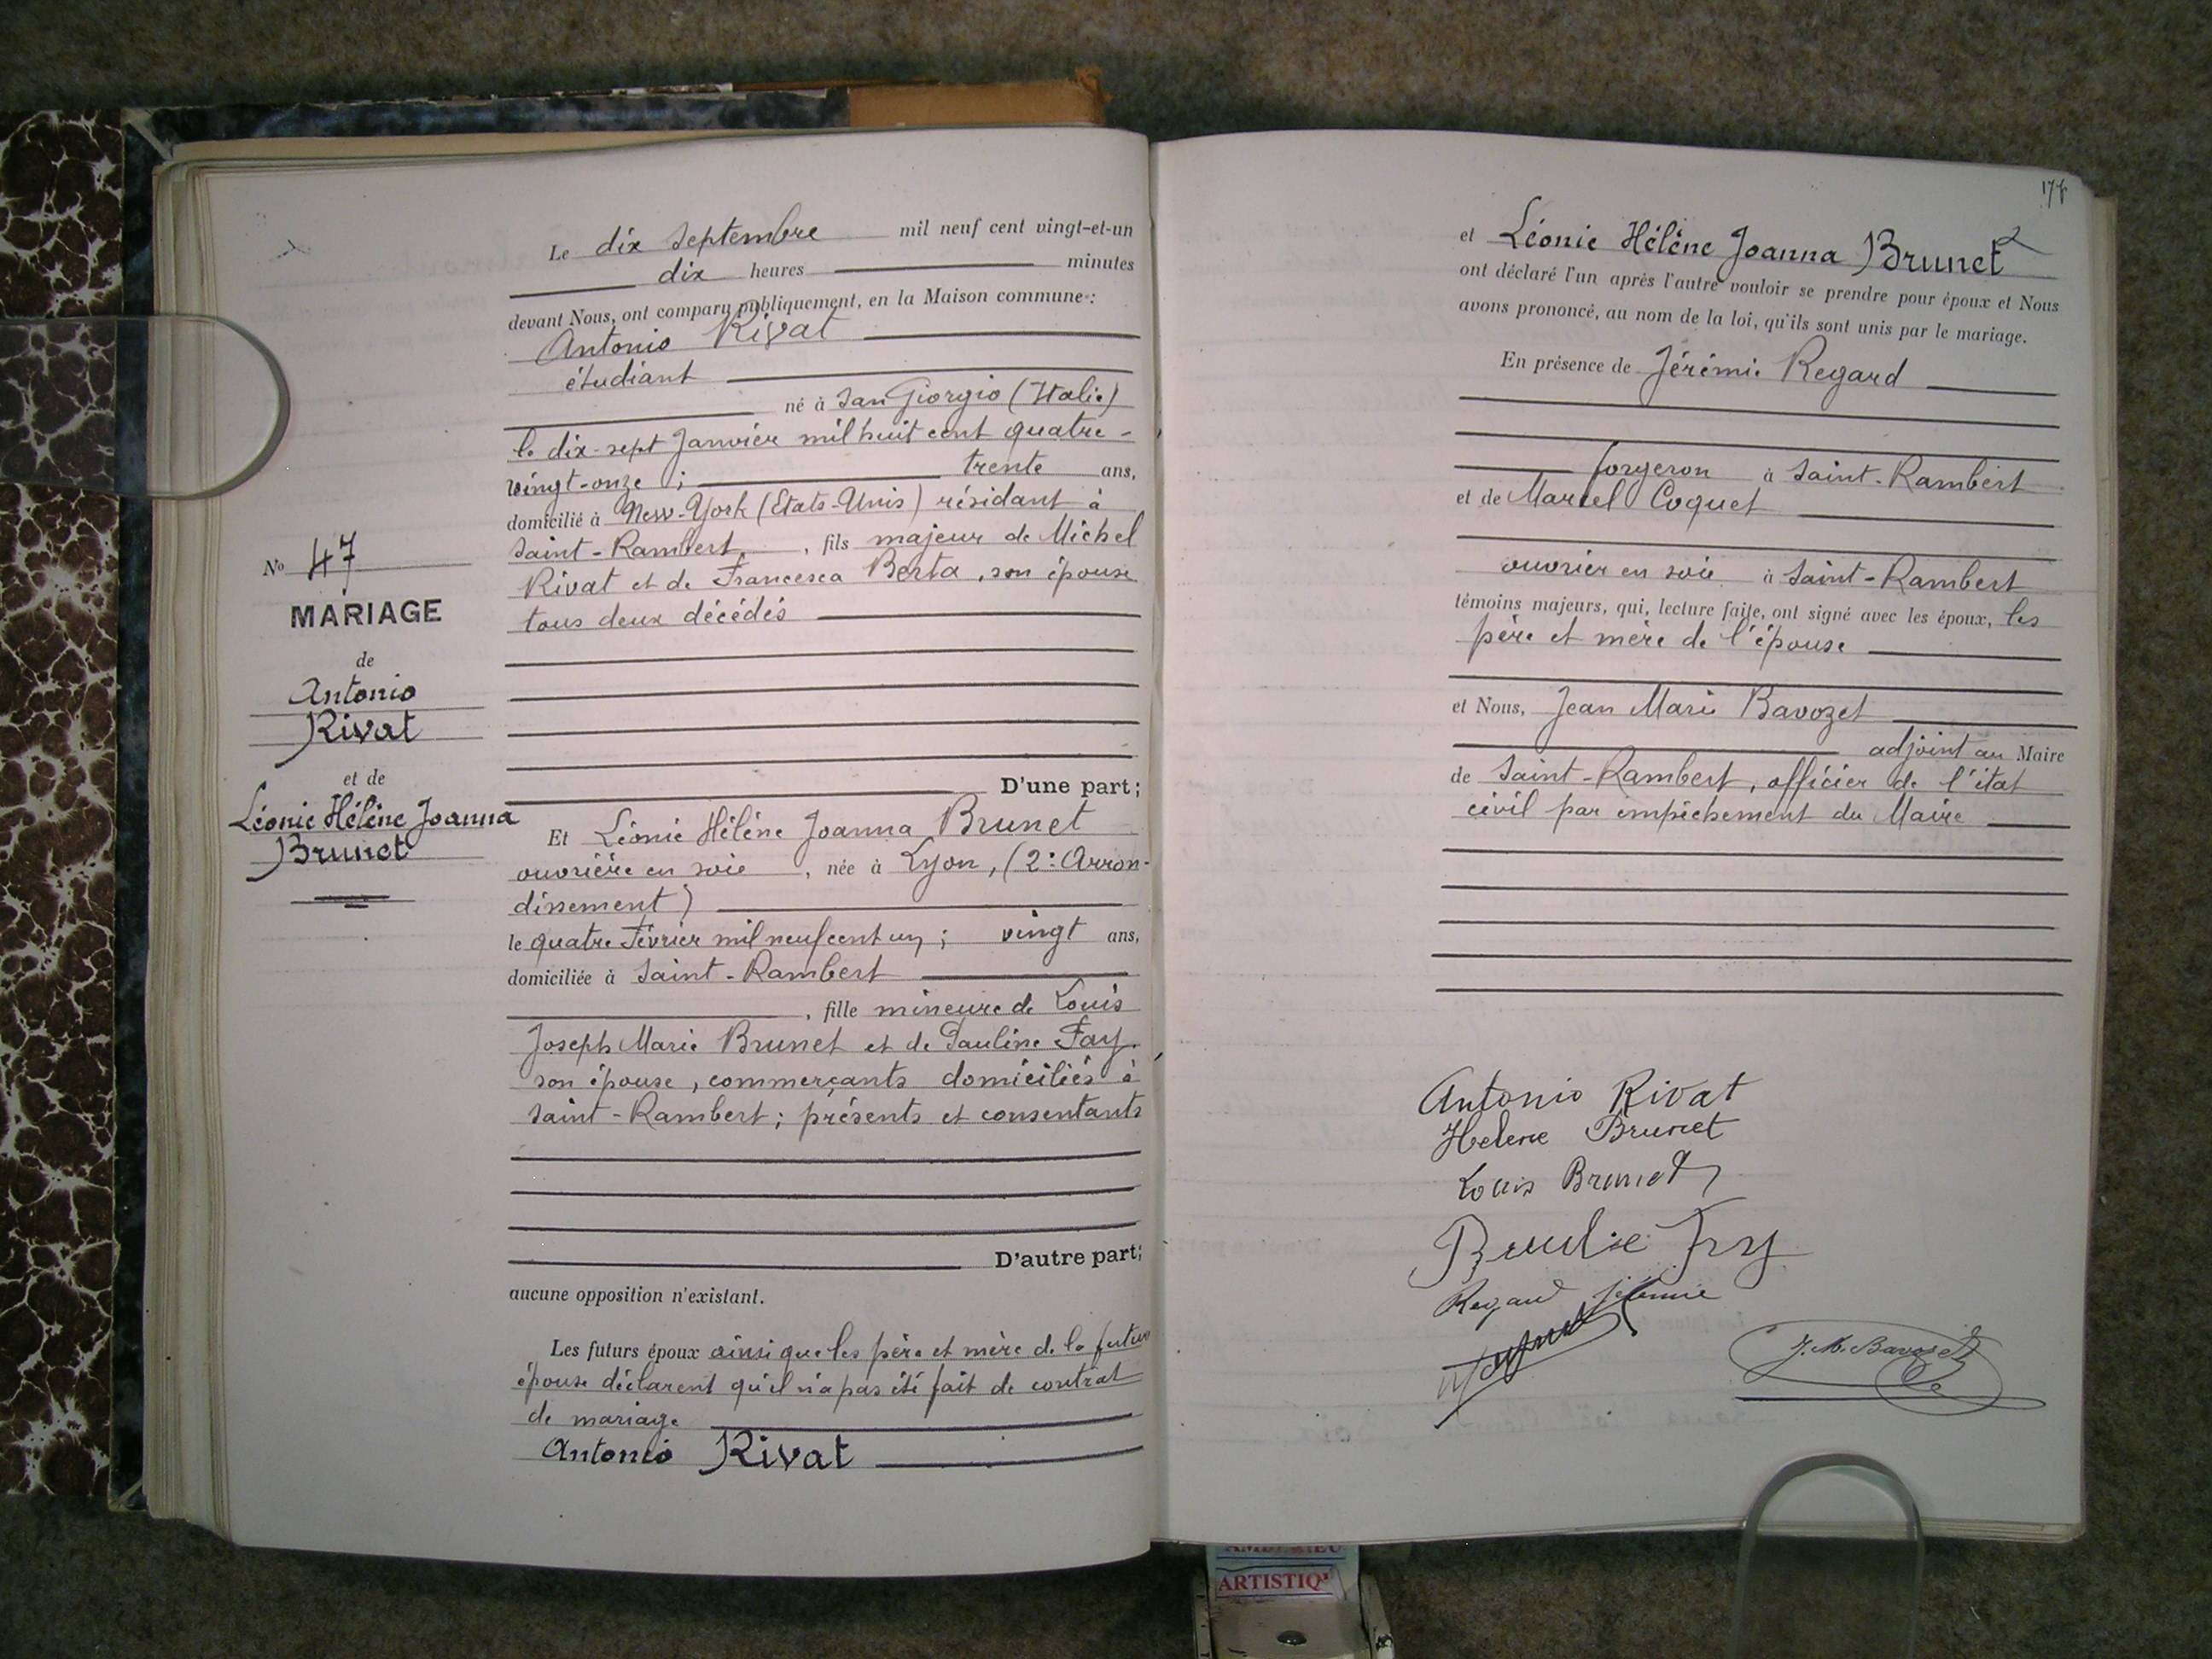 Le dix Septembre mil neuf cent vingt-et-un
dix heures minutes
devant Nous, ont comparu publiquement, en la Maison commune :
Antonio Rivat
étudiant
né à San Giorgio (Italie)
le dix-sept Janvier mil huit cent quatre-
vingt-onze ; trente ans,
domicilié à New-York (Etats-Unis) résidant à
Saint-Rambert, fils majeur de Michel
Rivat et de Francesca Berta, son épouse
tous deux décédés
No 47
MARIAGE
de
Antonio
Rivat
et de
Léonie Hélène Joanna
Brunet
D'une part;
Et Léonie Hélène Joanna Brunet
ouvrière en soie, née à Lyon, (2e Arron-
dissement)
le quatre Février mil neuf cent un ; vingt ans,
domiciliée à Saint-Rambert
, fille mineure de Louis
Joseph Marie Brunet et de Pauline Fay
son épouse, commerçants domiciliés à
Saint-Rambert ; présents et consentants
D'autre part;
aucune opposition n'existant.
Les futurs époux ainsi que les père et mère de la future
épouse déclarent qu'il n'a pas été fait de contrat
de mariage
Antonio Rivat
et Léonie Hélène Joanna Brunet
ont déclaré l'un après l'autre vouloir se prendre pour époux et Nous
avons prononcé, au nom de la loi, qu'ils sont unis par le mariage.
En présence de Jérémie Regard
forgeron à Saint-Rambert
et de Marcel Coquet
ouvrier en soie à Saint-Rambert
témoins majeurs, qui, lecture faite, ont signé avec les époux, les
père et mère de l'épouse
et Nous, Jean Marie Bavozet
adjoint au Maire
de Saint-Rambert, officier de l'état
civil par empêchement du Maire
Antonio Rivat
Helene Brunet
Louis Brunet
Regard Jérémie
J. M. Bavozet
ARTISTIQ